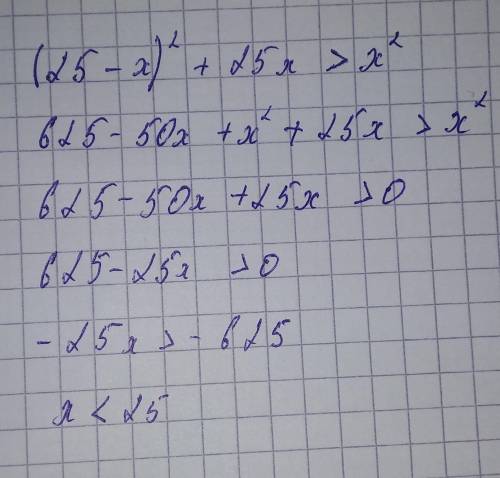 (25 - x)² + 25x > x²
625 - 50x + x² + 25x > x²
625 - 50x + 25x > 0
625 - 25x > 0
- 25x > - 625
x < 25